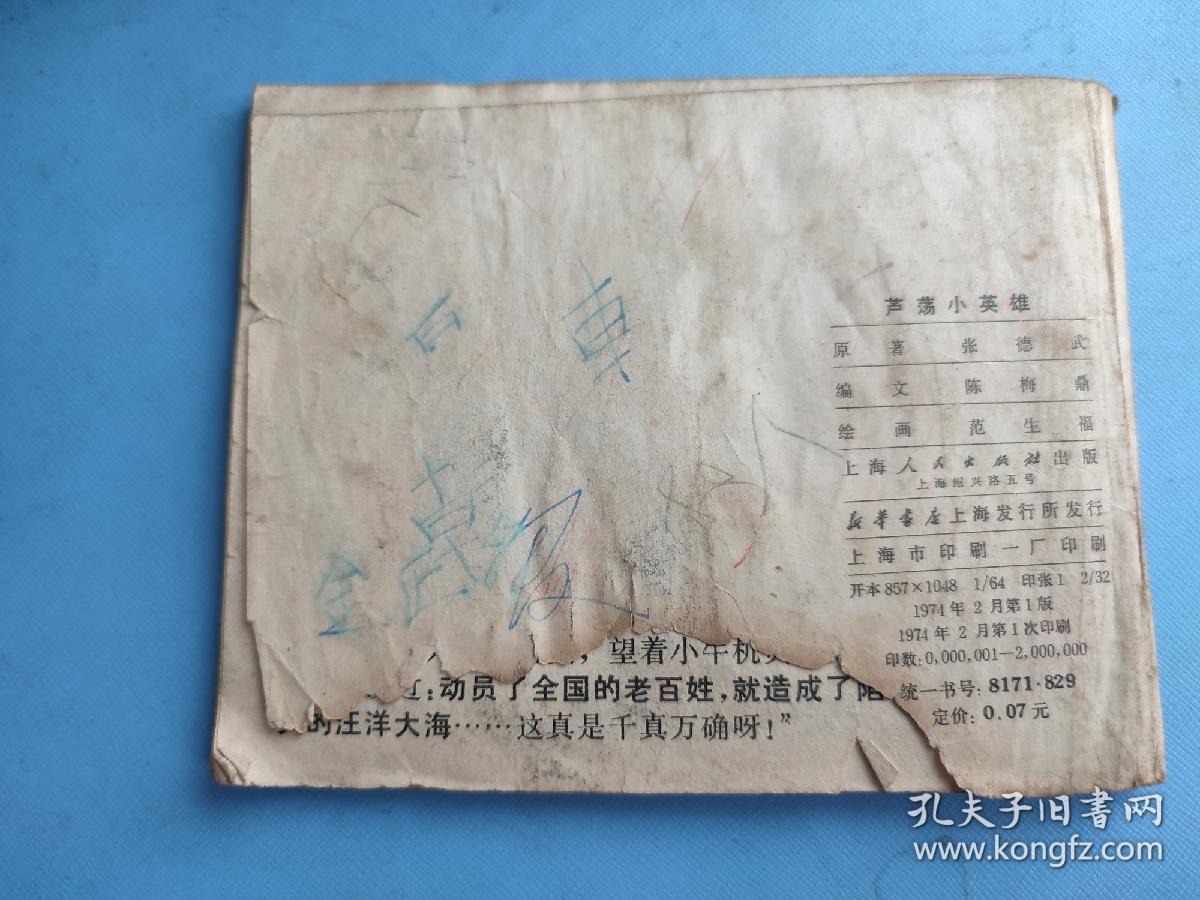 芦荡小英雄
原著 张德武
编文 陈梅鼎
绘画 范生福
上海人民出版社出版
上海绍兴路五号
新华书店上海发行所发行
上海市印刷一厂印刷
开本 857×1048 1/64 印张1 2/32
1974年2月第1版
1974年2月第1次印刷
印数: 0,000,001—2,000,000
统一书号: 8171·829
定价: 0.07元
，望着小牛机
：动员了全国的老百姓，就造成了陷
的汪洋大海……这真是千真万确呀！”
孔夫子旧书网
www.kongfz.com